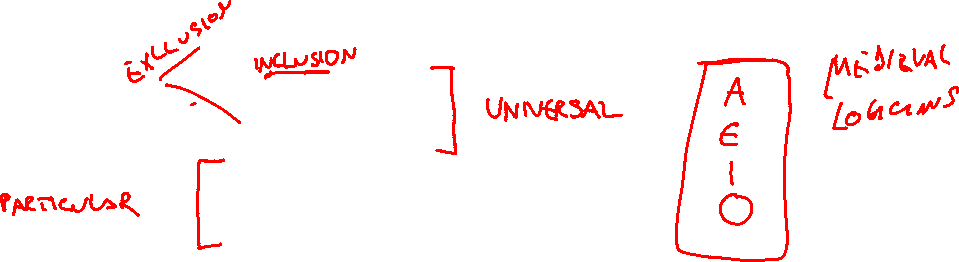 EXCLUSION
INCLUSION
UNIVERSAL
PARTICULAR
A
E
I
O
MEDIEVAL
LOGICIANS